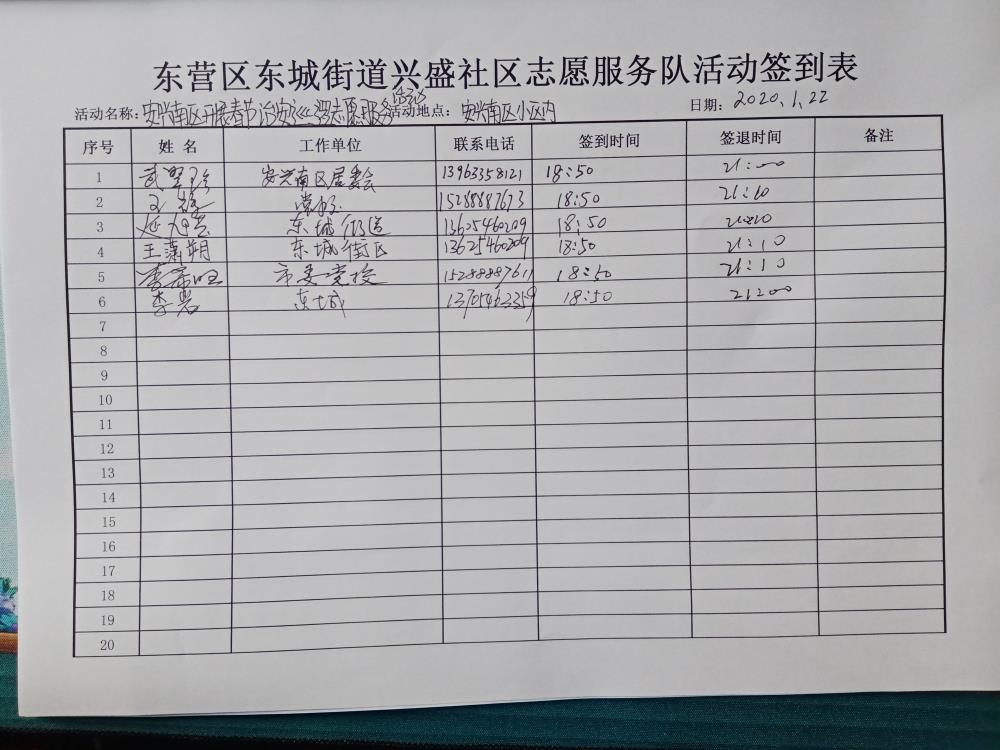 东营区东城街道兴盛社区志愿服务队活动签到表
活动名称:安兴南区开展春节治安巡逻志愿服务活动 活动地点:安兴南区小区内 日期:2020.1.22
序号 姓名 工作单位 联系电话 签到时间 签退时间 备注
1 安兴南区居委会 13963358121 18:50 21:00
2 15288887673 18:50 21:10
3 东城街道 13625460209 18:50 21:10
4 王潇朔 东城街区 13625460209 18:50 21:10
5 李希旺 市委党校 18:50 21:10
6 李岩 东城 13705463359 18:50 21:00
7
8
9
10
11
12
13
14
15
16
17
18
19
20